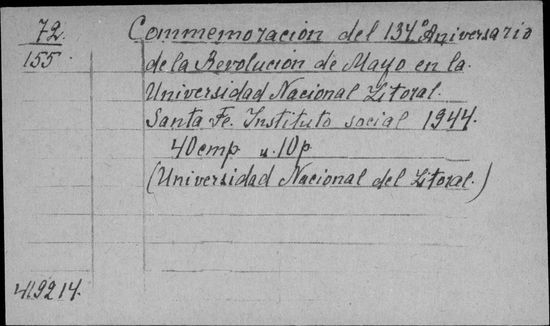 72
155.
Commemoración del 134° Aniversario
de la Revolución de Mayo en la
Universidad Nacional Litoral.
Santa Fe. Instituto social 1944.
40 cmp u. 10 p
(Universidad Nacional del Litoral.)
419214.